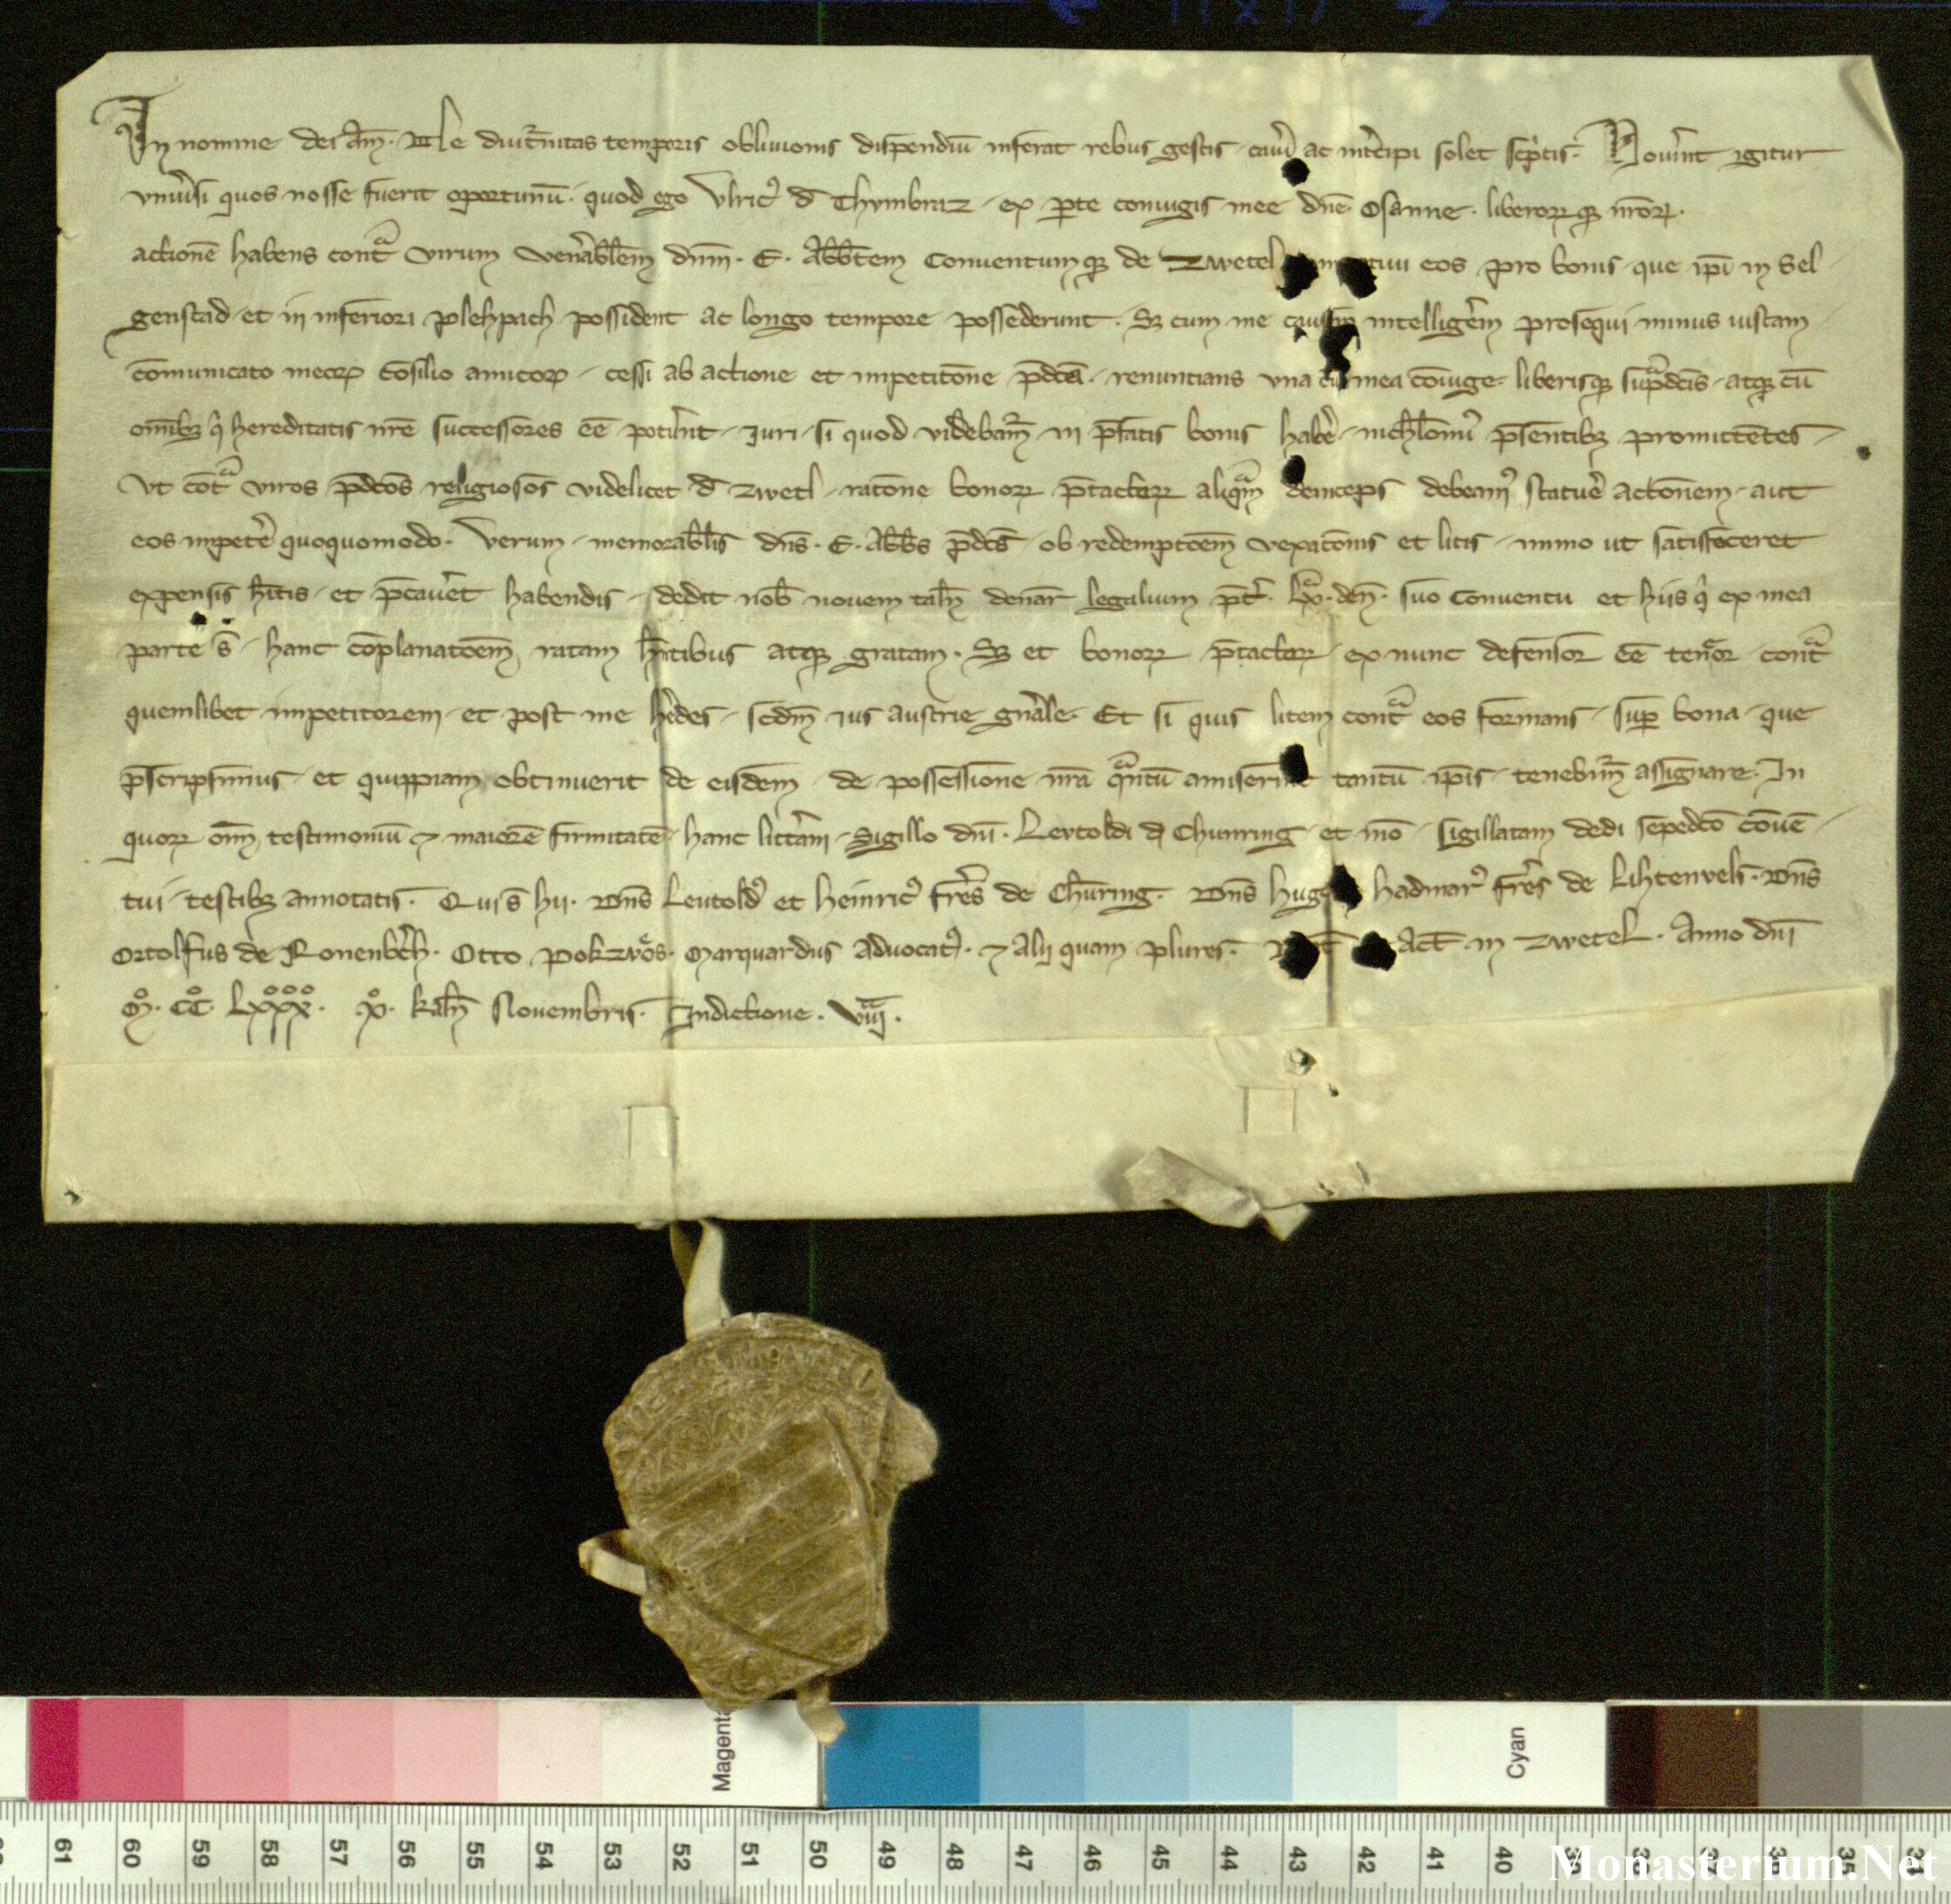 In nomine dei am̄. Ne diut̉nitas temporis obliuionis dispendiū inferat rebus gestis caůi ac int̉cipi solet sc̉ptis. Nouẻnt igitur
vniủsi quos nosse fuerit oportunū. quod ego Vlricꝰ d̄ Thymbraz ex ꝑte coniugis mee dn̄e Osanne. liberorꝝ nr̄oꝝ.
actionē habens contᵃ virum ven̉abl̄em dn̄m. E. Abb̄tem Conuentumqꝫ de Zwetel eos pro bonis que ip̄i in Sel
genstad et in inferiori plehpach possident ac longo tempore possederunt. Sꝫ cum me causam intelligẻm prosequi minus iustam
cōmunicato meoꝝ cōsilio amicoꝝ cessi ab actione et impetitōne p̄dcā. renuntians vna cū mea cōiuge liberisqꝫ supᵃdcīs atqꝫ cū
om̄ibꝫ qⁱ hereditatis nr̄e successores ēe potẻint iuri si quod videbamꝰ in p̄fatis bonis habẻ nichl̄omiꝰ p̄sentibꝫ promittētes
vt cōtᵃ viros p̄dcōs religiosos videlicet d̄ Zwetl ratōne bonoꝝ p̄tactoꝝ aliqᵃm deinceps debeamꝰ statuẻ actōnem aut
eos impetẻ quoquomodo. Verum memorabl̄is dn̄s. E. Abb̄s p̄dcs̄ ob redemptōem vexatōnis et litis immo ut satisfaceret
expensis hītis et p̄cauẻt habendis dedit nob̄ nouem tal̄n denar̄ legalium p̄t̉. lxᵃ. den̄. suo Conuentu et hiis qⁱ ex mea
parte s̄ hanc cōplanatōem ratam hn̄tibus atqꝫ gratam. Sꝫ et bonoꝝ p̄tactoꝝ ex nunc defensor ēe teneor contᵃ
quemlibet impetitorem et post me hẻdes scdm̄ ius austrie gn̉ale. Et si quis litem contᵃ eos formans sup̄ bona que
p̄scripsimus et quippiam obtinuerit de eisdem de possessione nr̄a qᵃntū amiserint tantū ip̄is tenebimꝰ assignare. In
quoꝝ om̄ testimoniū ⁊ maiorē firmitatē hanc litt̉am Sigillo dn̄i. Levtoldi d̄ Chunring et mō sigillatam dedi sepedcō cōuē
tui testibꝫ annotatis. Qui s̄ hii. Dn̄s Leutoldꝰ et heinricꝰ fr̄es de Chūring. Dn̄s hugo hadmarꝰ fr̄es de Lihtenvels. Dn̄s
Ortolfus de Ronenbch̉. Otto pokzvͦs. Marquardus aduocatꝰ. ⁊ alij quam plures. Act̄ in Zwetel. Anno dn̄i
Mͦ. CCͦ. Lxͦxͦxͦ. xͦ. kal̄n Nouembris. Indictione. viiijᵃ.
Magenta
Cyan
61 60 59 58 57 56 55 54 53 52 51 50 49 48 47 46 45 44 43 42 41 40
Monasterium.Net